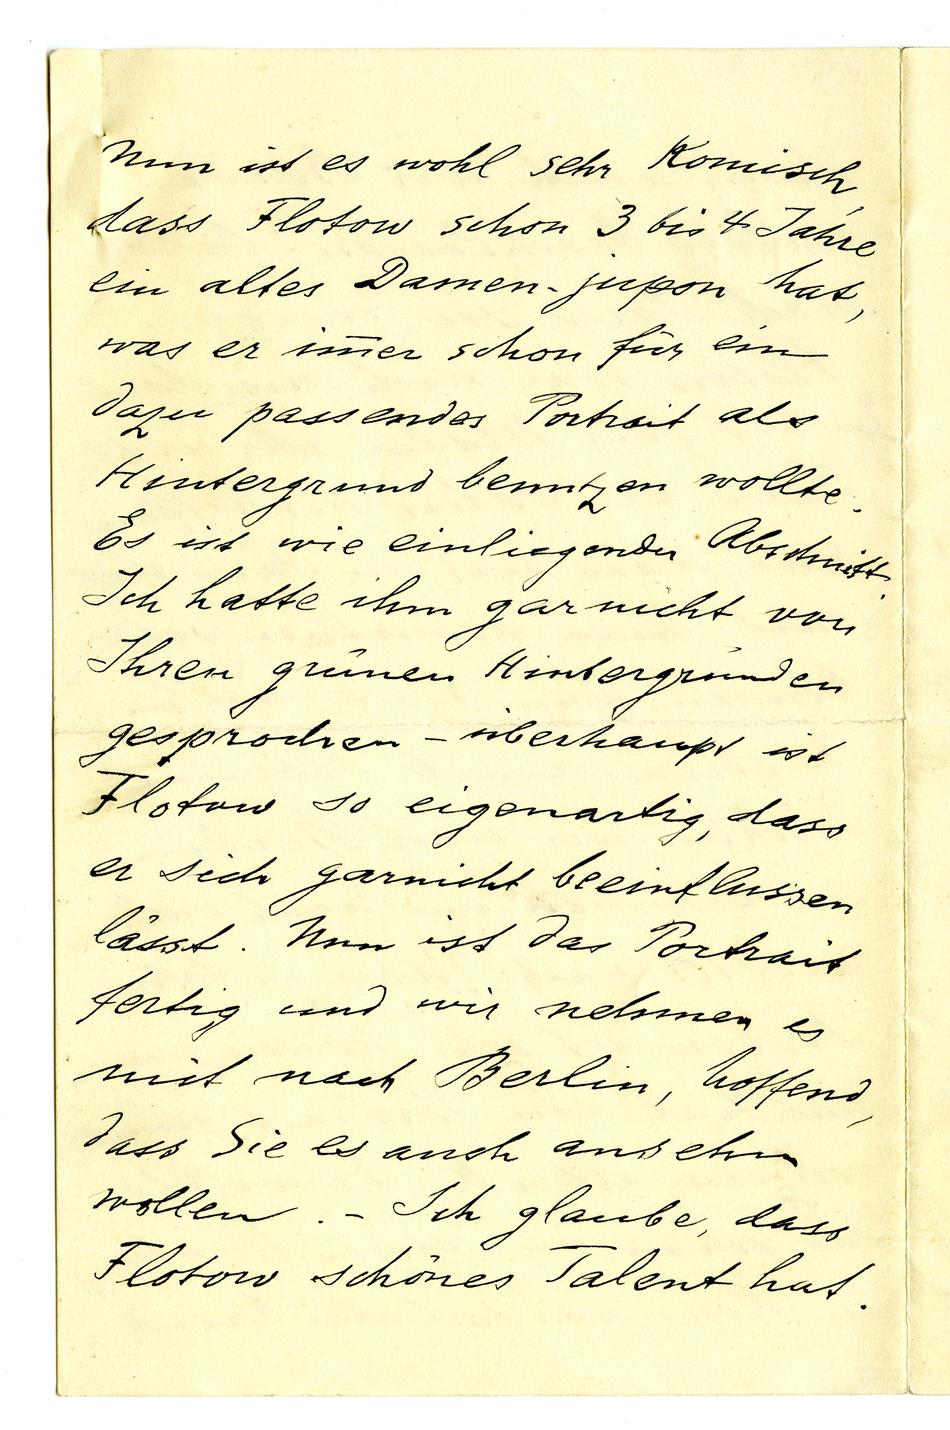 Nun ist es wohl sehr Komisch,
dass Flotow schon 3 bis 4 Jahre
ein altes Damen-jupon hat,
was er im̅er schon für ein
dazu passendes Portrait als
Hintergrund benutzen wollte.
Es ist wie einliegender Abschnitt.
Ich hatte ihm garnicht von
Ihren grünen Hintergründen
gesprochen – überhaupt ist
Flotow so eigenartig, dass
er sich garnicht beeinflussen
lässt. Nun ist das Portrait
fertig und wir nehmen es
mit nach Berlin, hoffend,
dass Sie es auch ansehn
wollen. – Ich glaube, dass
Flotow schönes Talent hat.